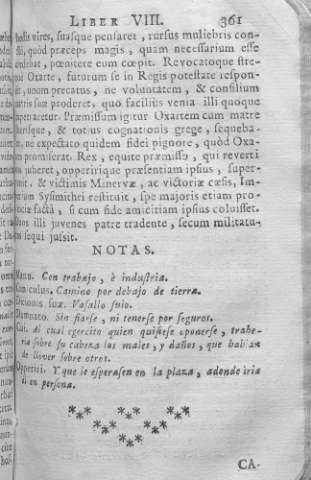 LIBER VIII. 361
hostis vires, suasque pensaret, rursus muliebris con-
silii, quòd præceps magis, quam necessarium esse
, pœnitere eum cœpit. Revocatoque stre-
Oxarte, futurum se in Regis potestate respon-
, unum precatus, ne voluntatem, & consilium
matris suæ proderet, quo faciliùs venia illi quoque
. Præmissum igitur Oxartem cum matre
, & totius cognationis grege, sequeba-
, ne expectato quidem fidei pignore, quòd Oxa-
promiserat. Rex, equite præmisso, qui reverti
juberet, opperirique præsentiam ipsius, super-
, & victimis Minervæ, ac victoriæ cæsis, Im-
Sysimithri restituit, spe majoris etiam pro-
facta, si cum fide amicitiam ipsius coluisset.
illi juvenes patre tradente, secum militatu-
sequi jussit.
NOTAS.
Manu. Con trabajo, è industria.
culus. Camino por debajo de tierra.
Ditionis suæ. Vasallo suio.
Damnato. Sin fiarse, ni tenerse por seguros.
Cui. Al cual egercito quien quisiese oponerse, trahe-
ria sobre su cabeza los males, y daños, que habian
de llover sobre otros.
Opperiri. Y que le esperasen en la plaza, adonde iria
èl en persona.
CA-